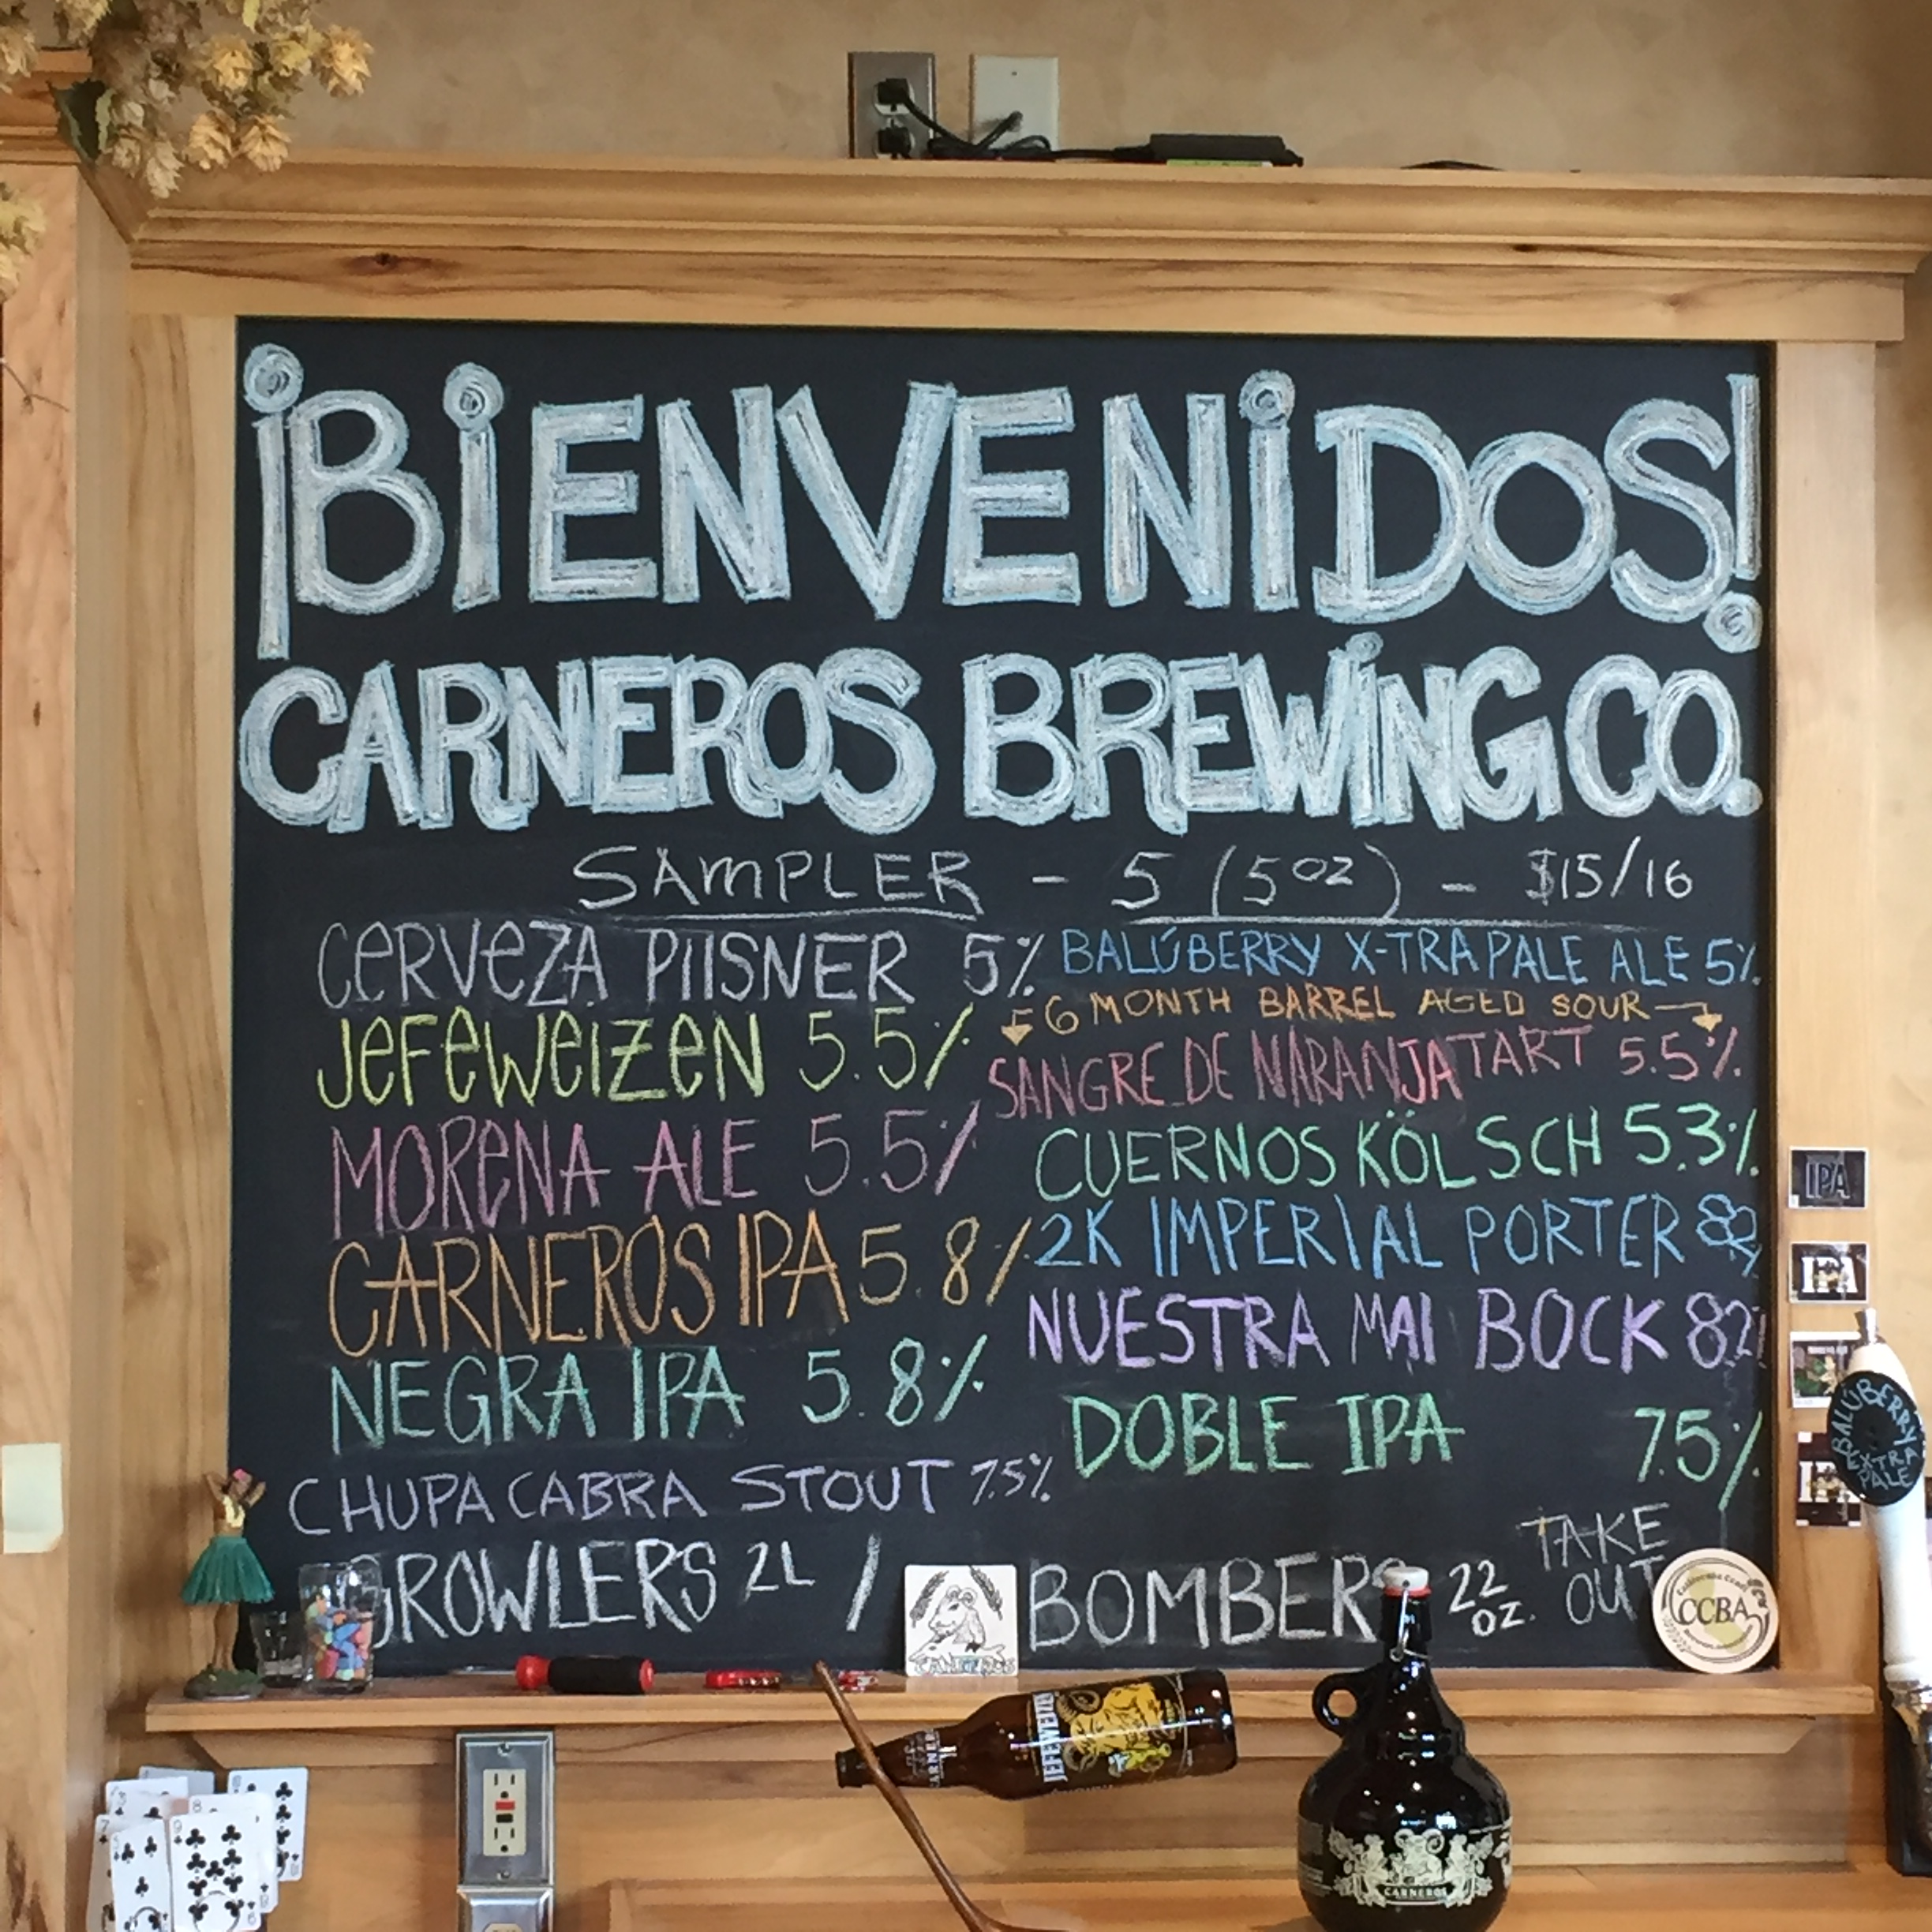 ¡BiENVENiDOS!
CARNEROS BREWiNG CO.
SAMPLER - 5 (5oz) - $15/16
CERVEZA PilSNER 5%
JEFEWEIZEN 5.5%
MORENA ALE 5.5%
CARNEROS IPA 5.8%
NEGRA IPA 5.8%
CHUPACABRA STOUT 7.5%
BALÚBERRY X-TRA PALE ALE 5%
6 MONTH BARREL AGED SOUR
SANGRE DE NARANJA TART 5.5%
CUERNOS KÖLSCH 5.3%
2K IMPERIAL PORTER 8.2%
NUESTRA MAI BOCK 8.2%
DOBLE IPA 7.5%
GROWLERS 2L / BOMBERS 22 OZ. TAKE OUT
CARNEROS
CCBA
IPA
IPA
BALÚBERRY
EXTRA
PALE
JEFEWEIZEN
CARNEROS